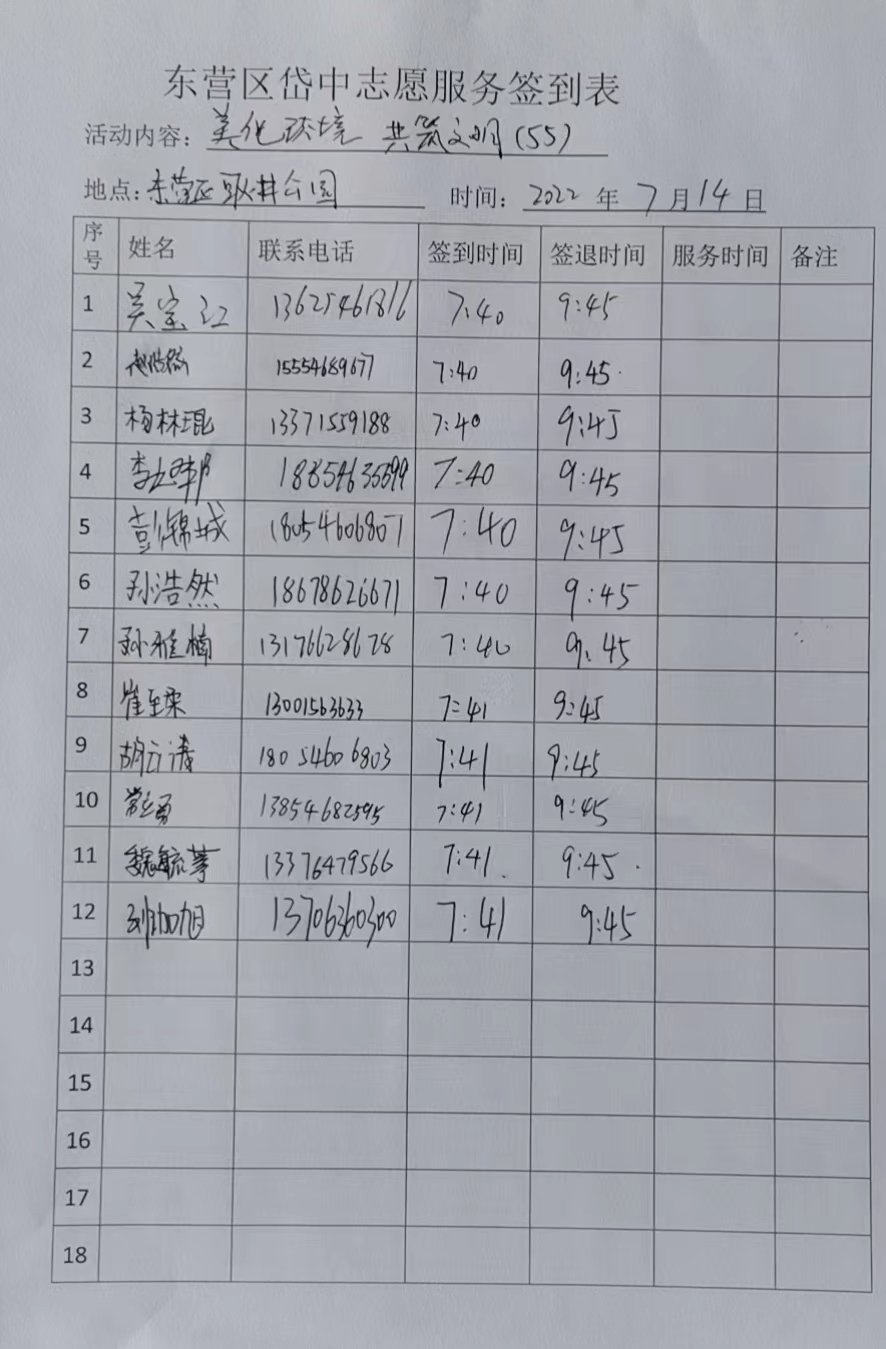 东营区岱中志愿服务签到表
活动内容：美化环境 共筑文明(55)
地点：东营区耿井公园 时间：2022年7月14日
序号 姓名 联系电话 签到时间 签退时间 服务时间 备注
1 吴宝江 13625461816 7:40 9:45
2 15554689677 7:40 9:45
3 杨林琨 13371559188 7:40 9:45
4 7:40 9:45
5 彭锦城 18054606807 7:40 9:45
6 孙浩然 18678626671 7:40 9:45
7 孙雅楠 13176628678 7:40 9:45
8 崔至柔 13001563633 7:41 9:45
9 胡云涛 18054606803 7:41 9:45
10 常立勇 13854682595 7:41 9:45
11 魏毓莘 13376479566 7:41 9:45
12 刘加旭 13706360300 7:41 9:45
13
14
15
16
17
18